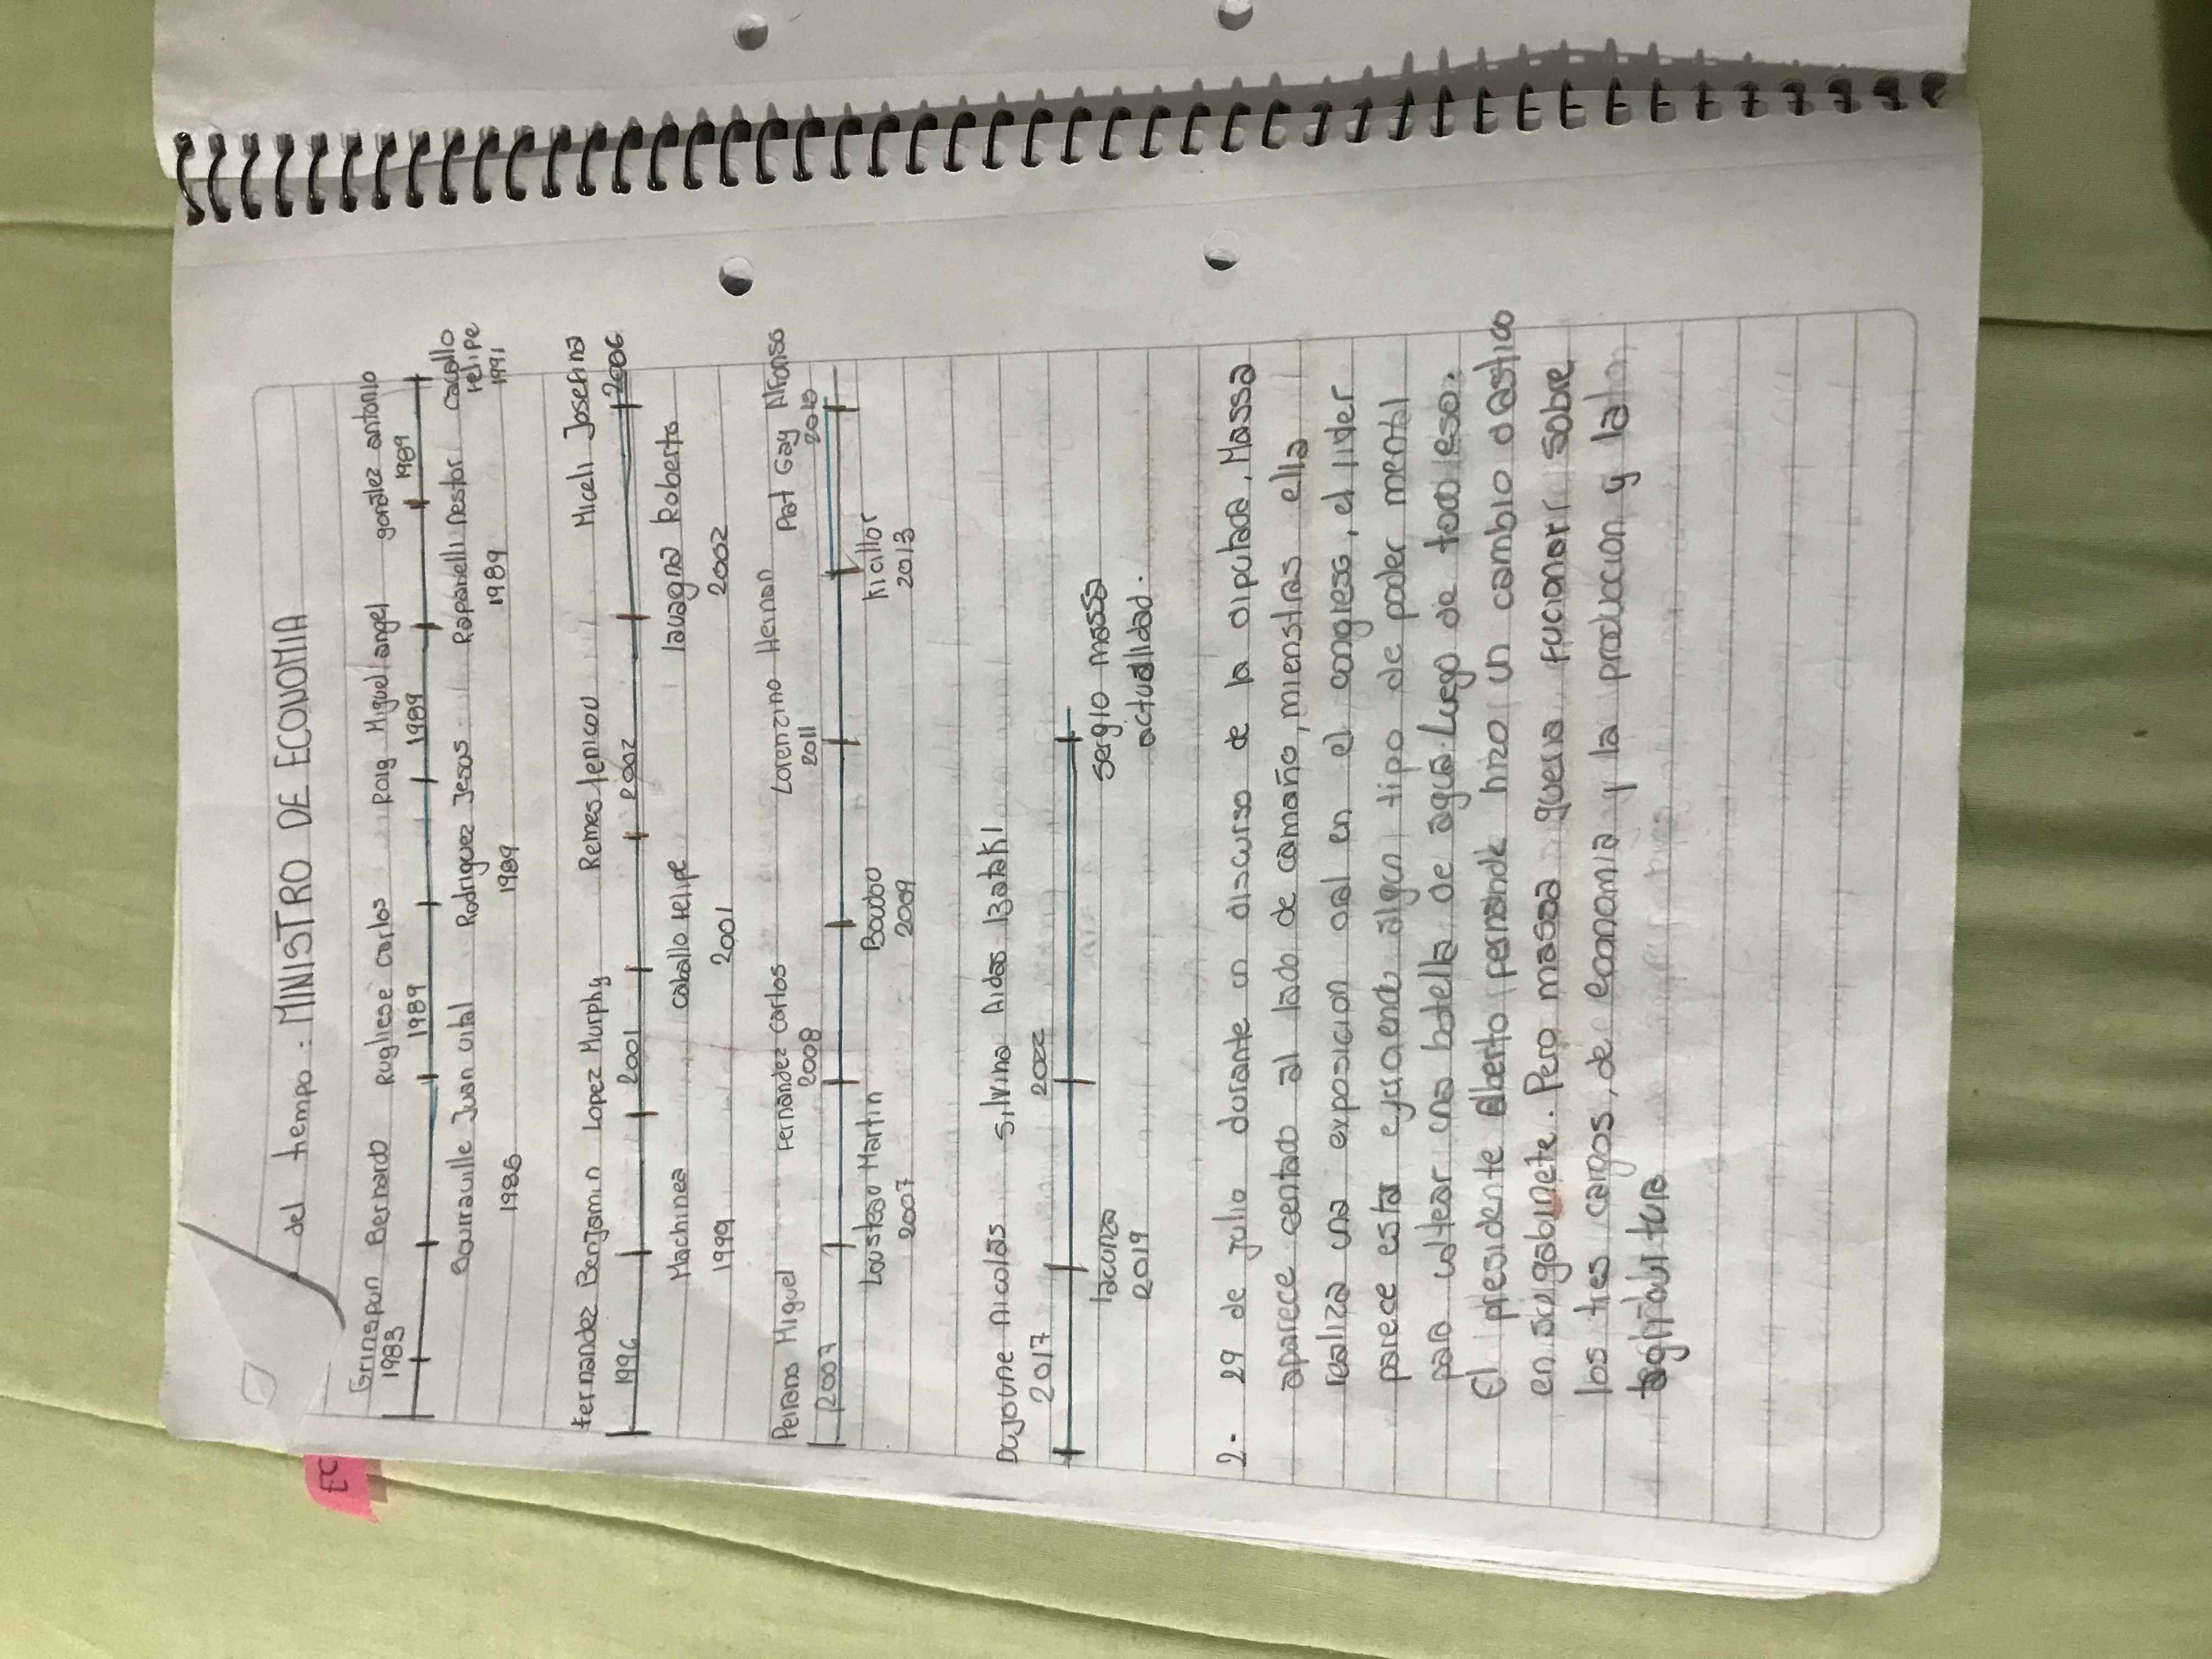 EC
del tiempo: MINISTRO DE ECONOMIA
Grinspun Bernardo Rugliese Carlos Roig Miguel angel gonzalez antonio
1983 1989 1989 1989
Sourauille Juan Vital Rodriguez Jesus Rapanelli Nestor Caballo
felipe
1986 1989 1989 1991
fernandez Benjamin Lopez Murphy Remes lenicou Miceli Josefina
1996 2001 2002 2006
Machinea caballo felipe lavagna Roberto
1999 2001 2002
Peirano Miguel Fernandez Carlos Lorenzino Hernan Pat Gay Alfonso
2007 2008 2011 2010
Lousteau Martin Boudou Kicillof
2007 2009 2013
Dujovne Nicolas Silvina Aidas Batakl
2017 2022
lacunza sergio massa
2019 actualidad.
2- 29 de julio durante un discurso de la diputada, Massa
aparece centado al lado de camaño, mienstras ella
realiza una exposicion oal en el congreso, el lider
parece estar ejerciendo algun tipo de poder mental
para voltear una botella de agua. Luego de todo eso.
El presidente Alberto fernande hizo un cambio dastico
en su gabinete. Pero massa queria fucionar sobre
los tres cargos, de economia y la produccion y la
agricultura